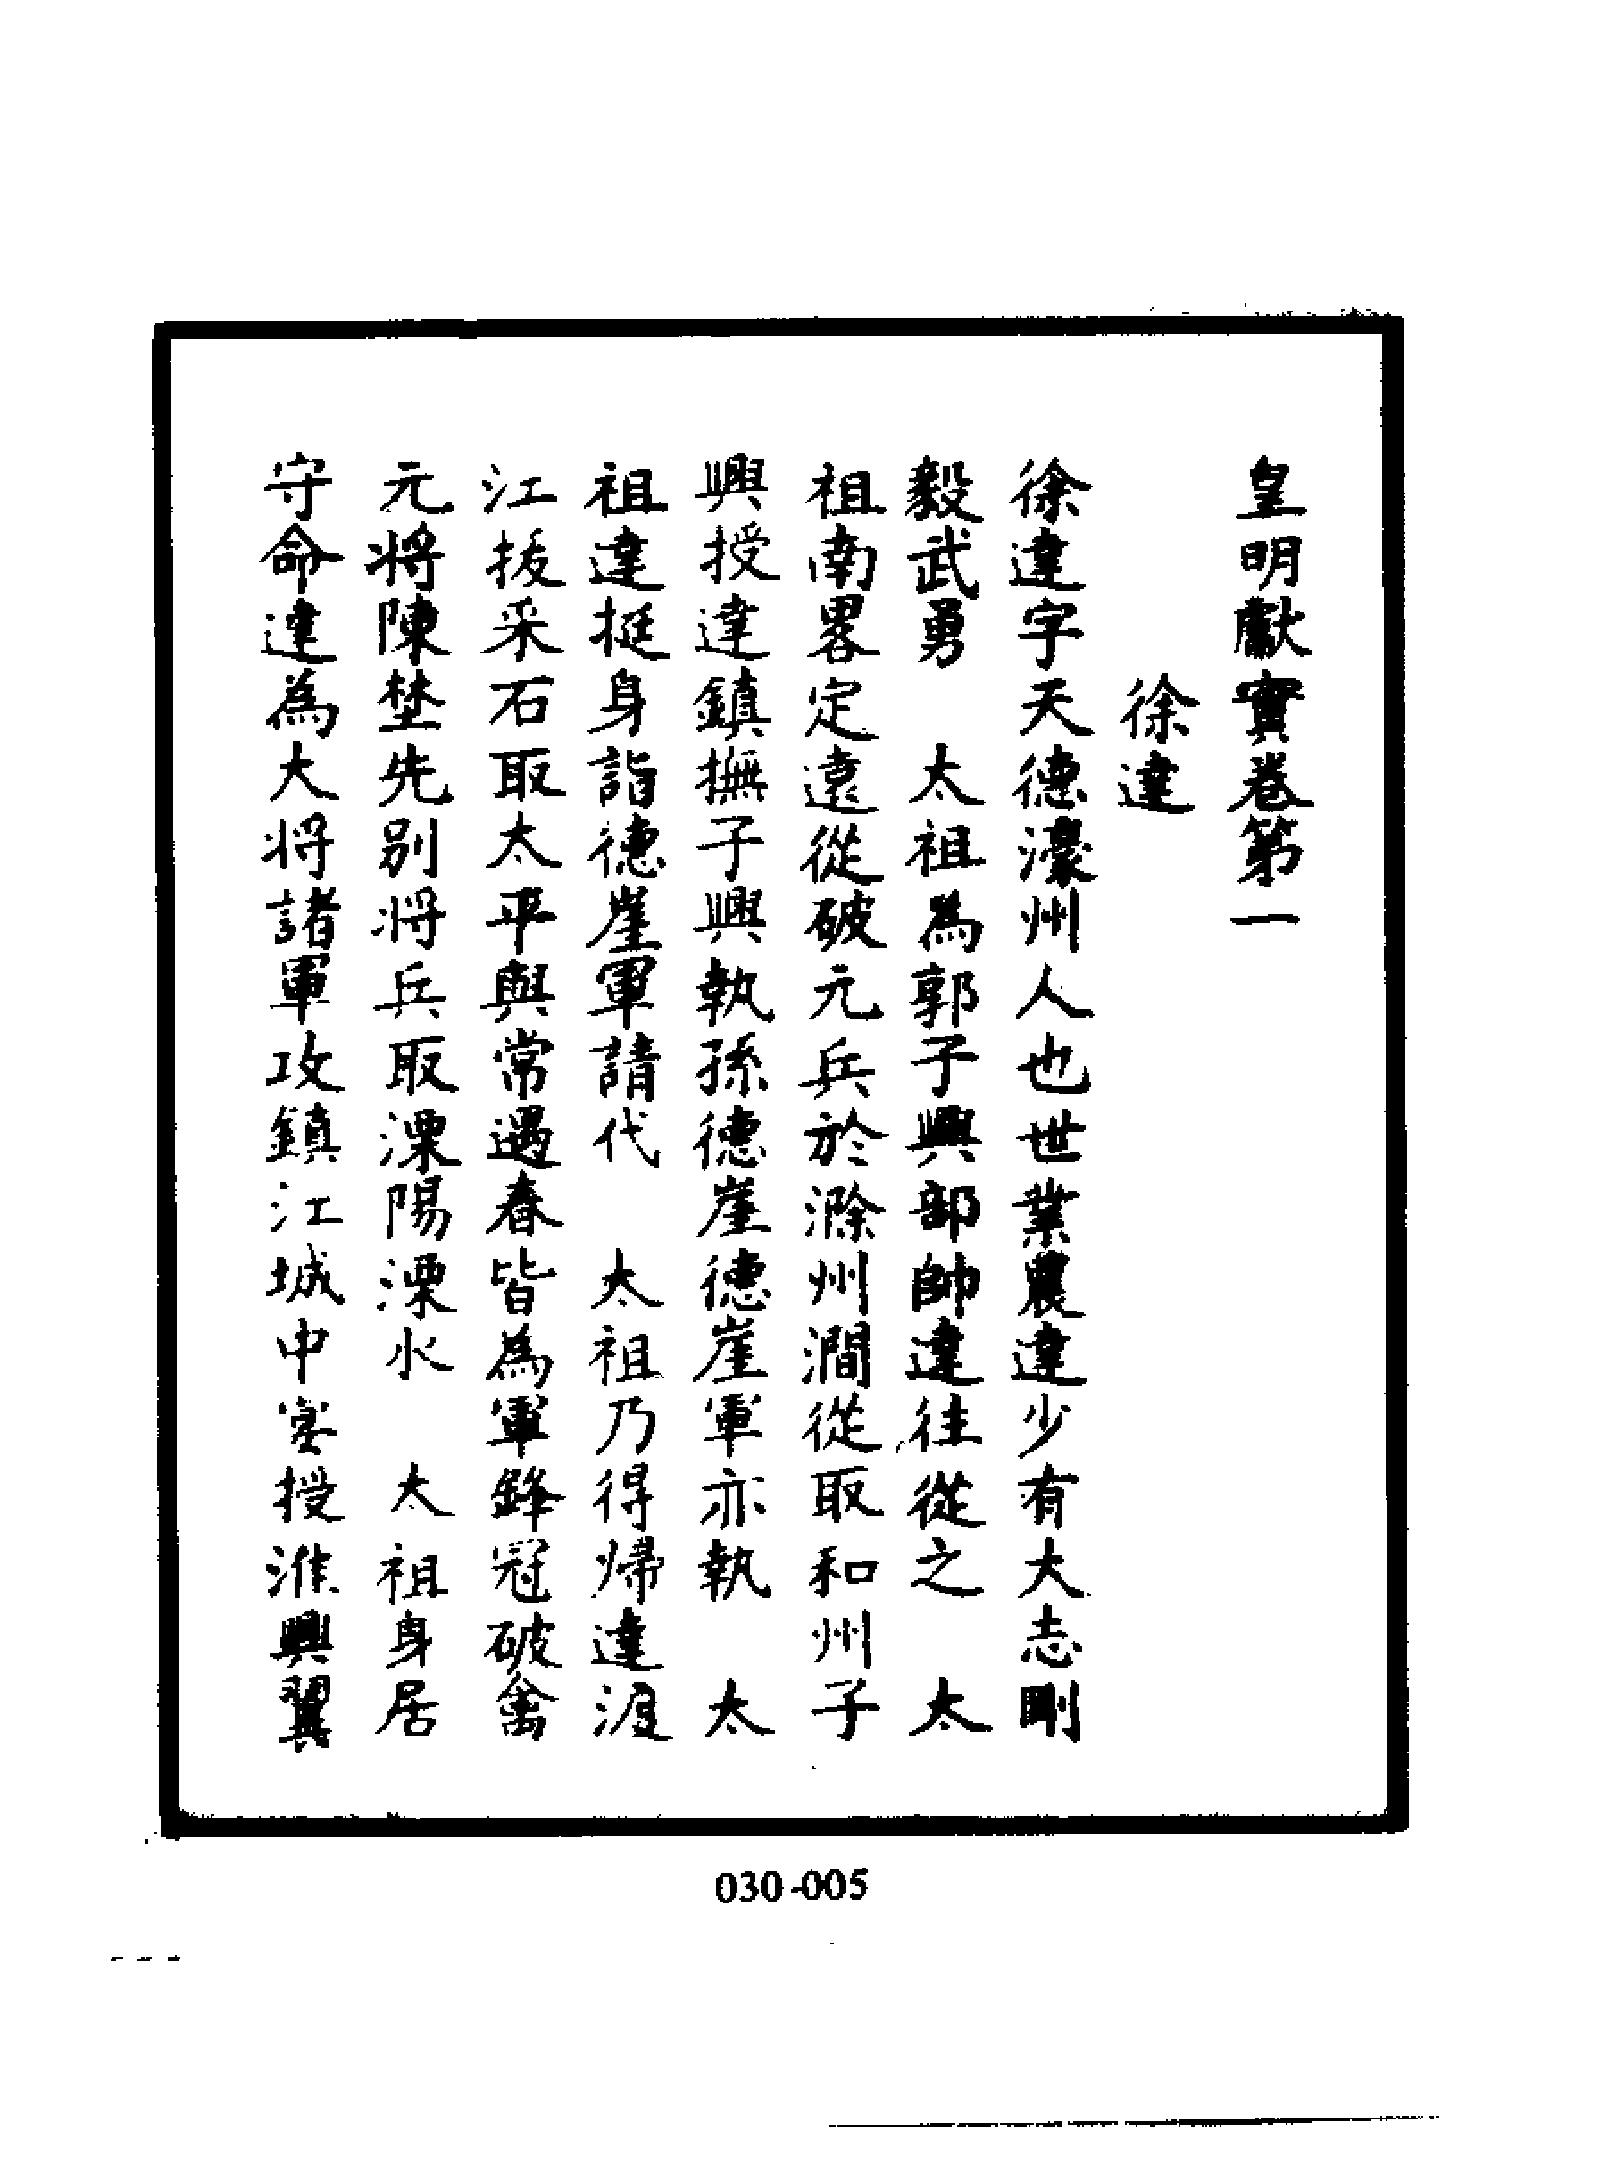 皇明獻實卷第一
徐達
徐達字天德濠州人也世業農達少有大志剛
毅武勇　太祖為郭子興部帥達往從之　太
祖南畧定遠從破元兵於滁州澗從取和州子
興授達鎮撫子興執孫德崖德崖軍亦執　太
祖達挺身詣德崖軍請代　太祖乃得帰達渡
江拔采石取太平與常遇春皆為軍鋒冠破禽
元將陳埜先別將兵取溧陽溧水　太祖身居
守命達為大將諸軍攻鎮江城中宴授淮興翼
030-005